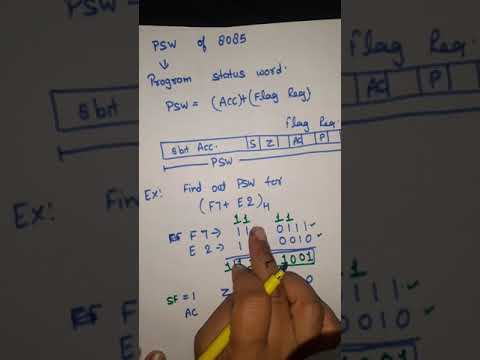 PSW of 8085
↓
Program status word.
PSW = (Acc)+(Flag Reg)
Flag Req.
AC P
Flag Reg.
8bit Acc. S Z AC P
PSW
Ex: Find out PSW for
(F7+ E2)H
11 11
F7→ 11 0111 ✓
E2→ 1 0010 ✓
1 1 1001
SF = 1 Z 0
AC
8bit
PSW
Ex:
0111 ✓
0010 ✓
1001
0